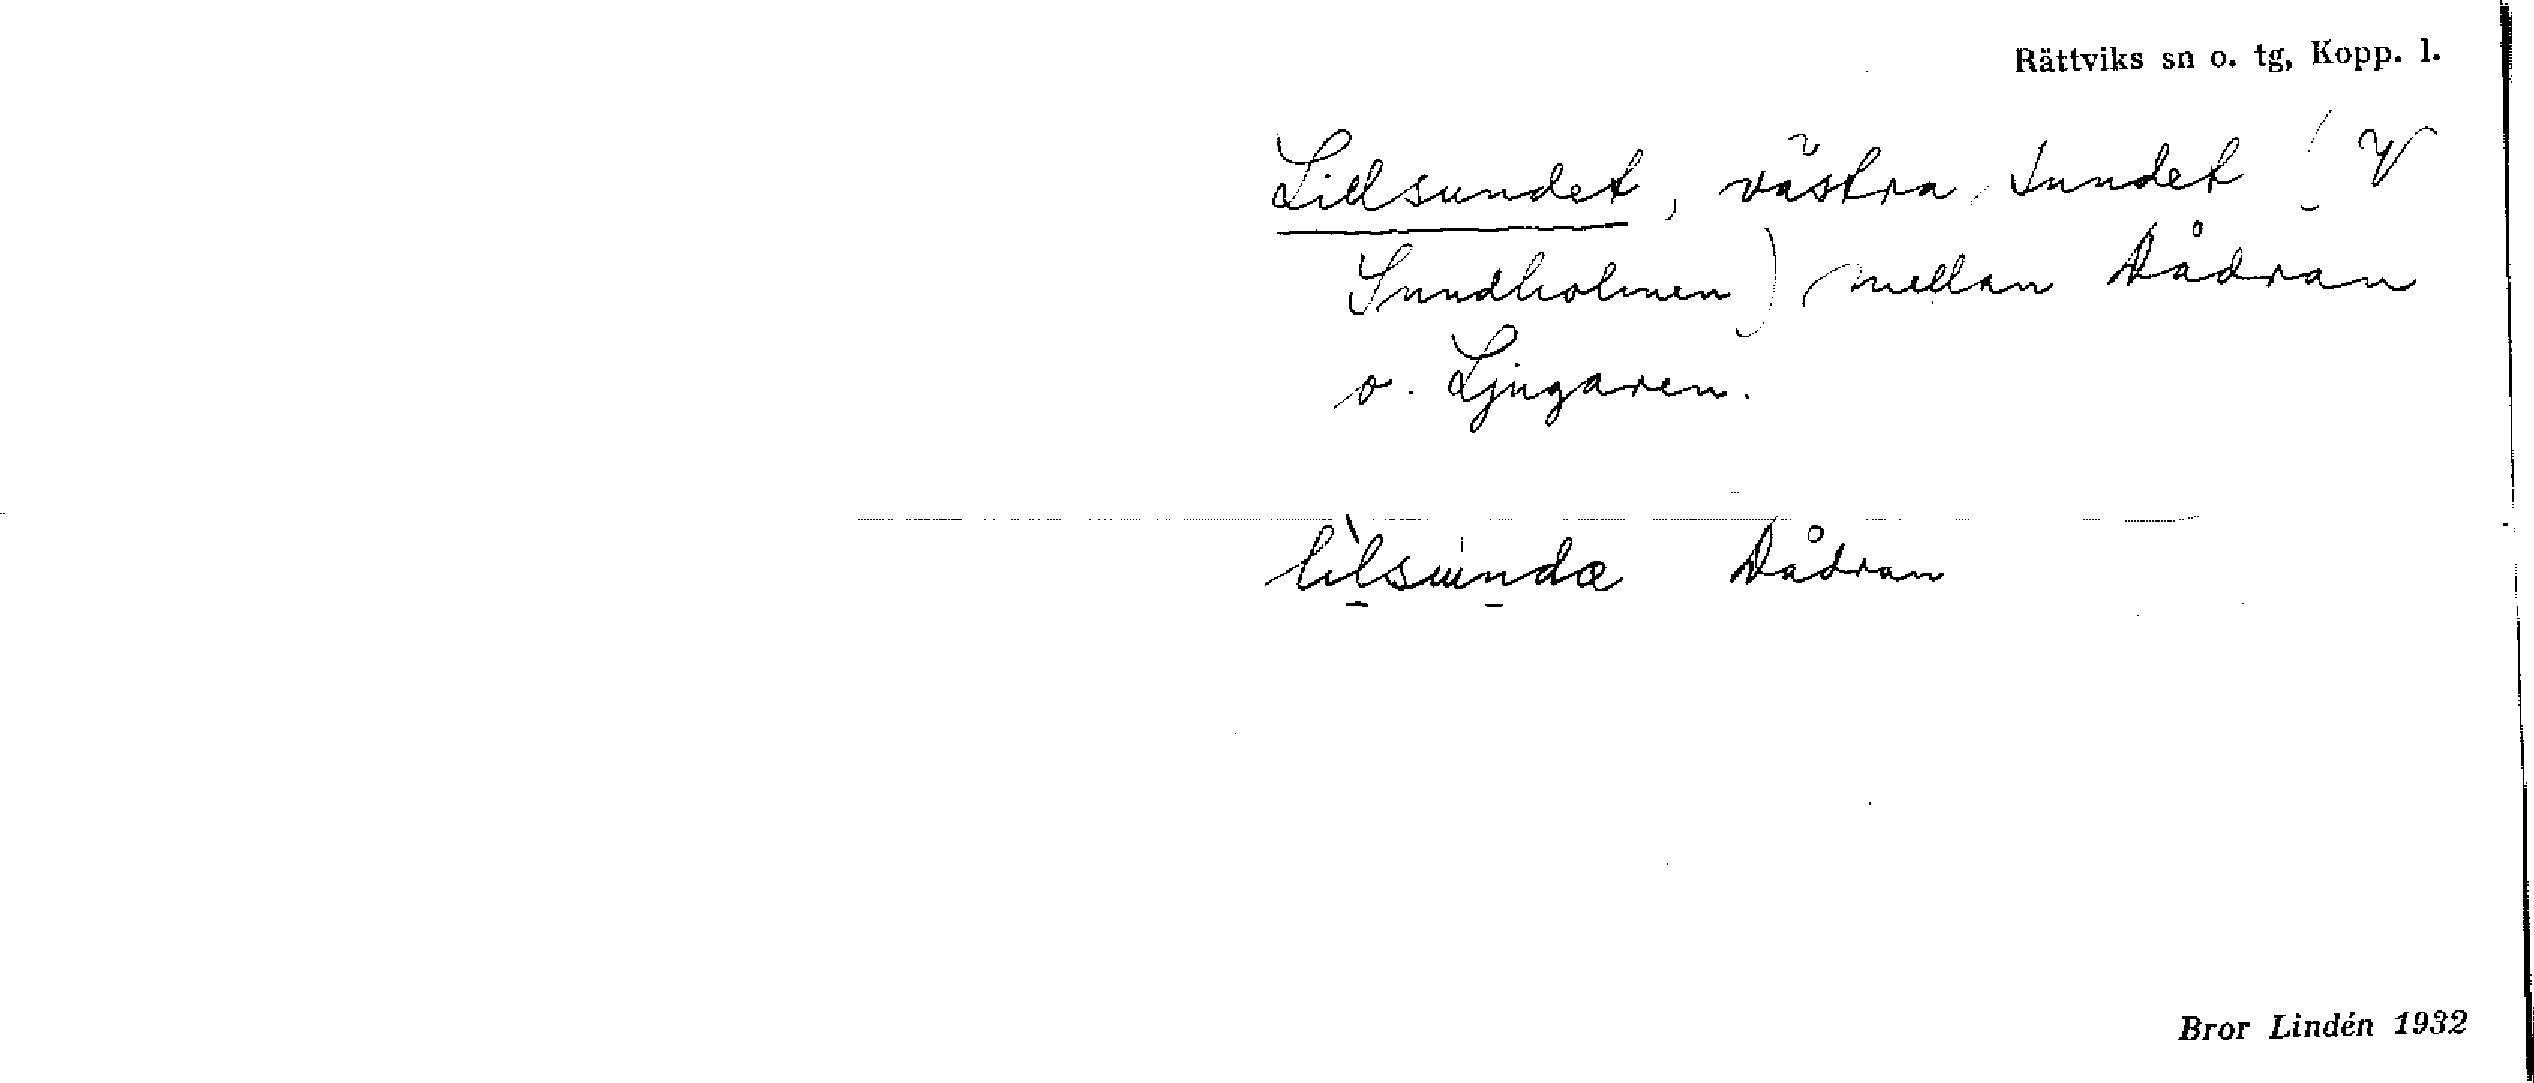 Rättviks sn o. tg, Kopp. l.
Lillsundet, västra sundet (V
Sundholmen) mellan Dådran
o. Ljugaren.
lìlsunda Dådran
Bror Lindén 1932